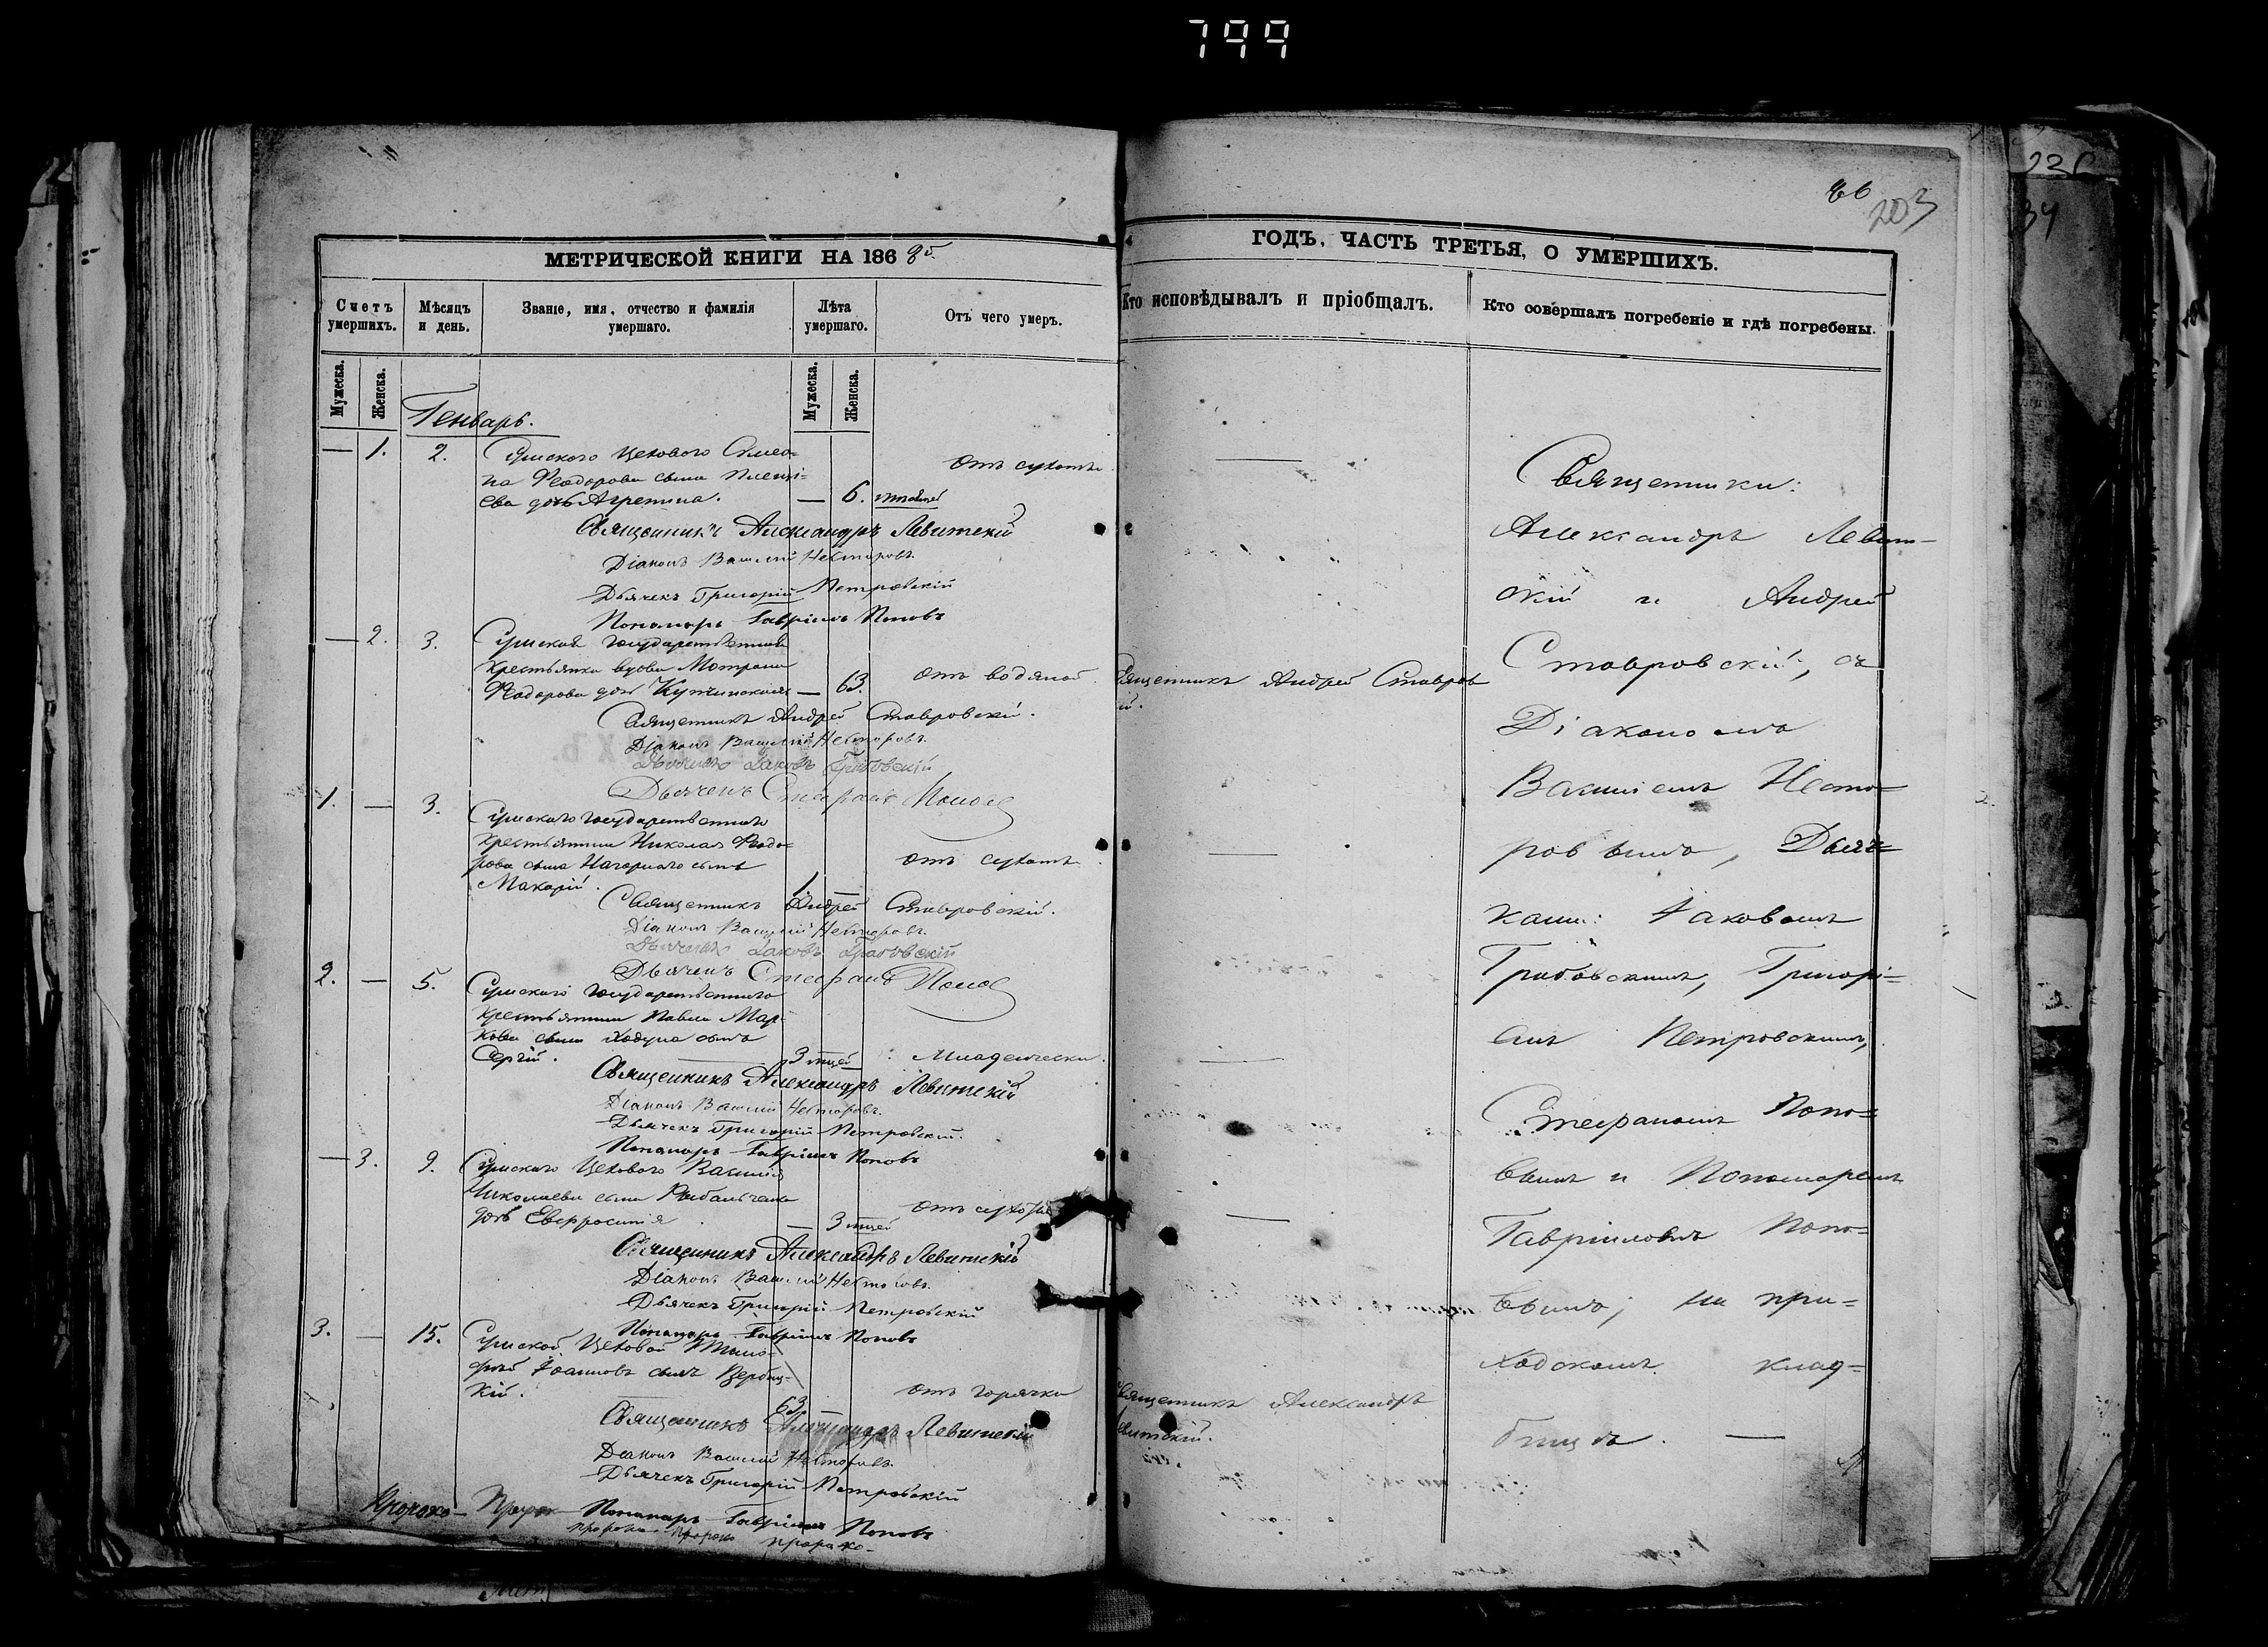 799
86
203
МЕТРИЧЕСКОЙ КНИГИ НА 186
ГОДЪ, ЧАСТЬ ТРЕТЬЯ, О УМЕРШИХЪ.
Счетъ умершихъ.
Мѣсяцъ и день.
Званіе, имя, отчество и фамилія умершаго.
Лѣта умершаго.
Отъ чего умеръ.
Кто исповѣдывалъ и пріобщалъ.
Кто совершалъ погребеніе и гдѣ погребены.
Мужеска.
Женска.
Мужеска.
Женска.
Генварь.
— 1. 2. Сумского Цехового Симео-
на Феодорова сына
ева дочь Агрепина. — 6.
отъ сухоты
Священникъ Александръ Левитскій
Діаконъ Василій Несторовъ
Дьячекъ Григорій Петровскій
Пономарь Гавріилъ Поповъ
— 2. 3. Сумская Государственная
крестьянка вдова Мотрона
Феодорова дочь — 63.
отъ водяной
Священникъ Андрей Ставров
ій.
Священникъ Андрей Ставровскій.
Діаконъ Василій Несторовъ.
Дьячекъ Іаковъ Грабовскій
Дьячекъ Стефанъ Попов
1. — 3. Сумского Государственного
крестьянина Николая Феодо-
рова сына Нагорного сынъ
Макарій. 1. —
отъ сухоты
Священникъ Андрей Ставровскій.
Діаконъ Василій Несторовъ.
Дьячекъ Іаковъ Грабовскій
Дьячекъ Стефанъ Попов
2. — 5. Сумского Государственного
крестьянина Павла Мар-
кова сына Ходуна сынъ
Сергій. 3 мцей
Младенческ
Священникъ Александръ Левитскій
Діаконъ Василій Несторовъ.
Дьячекъ Григорій Петровскій.
Пономарь Гавріилъ Поповъ
— 3. 9. Сумского Цехового Василія
Николаева сына
дочь Евфросинія — 3 мцей
отъ сухоты
Священникъ Александръ Левитскій
Діаконъ Василій Несторовъ.
Дьячекъ Григорій Петровскій
Пономарь Гавріилъ Поповъ
3. — 15. Сумской Цеховой Тимо-
фей Іоанновъ сынъ Вербиц-
кій. 63.
отъ горячки
Священникъ Александръ
евитскій.
Священникъ Александръ Левитскій
Діаконъ Василій Несторовъ.
Дьячекъ Григорій Петровскій
Пономарь Гавріилъ Поповъ
Священники:
Александръ Левит-
скій и Андрей
Ставровскій, съ
Діакономъ
Василіемъ Несто-
ровымъ, Дьяч-
ками: Іаковомъ
Грабовскимъ, Григорі-
емъ Петровскимъ,
Стефаномъ Попо-
вымъ и Пономаремъ
Гавріиломъ Попо-
вымъ; на при-
ходскомъ клад-
бищѣ. —